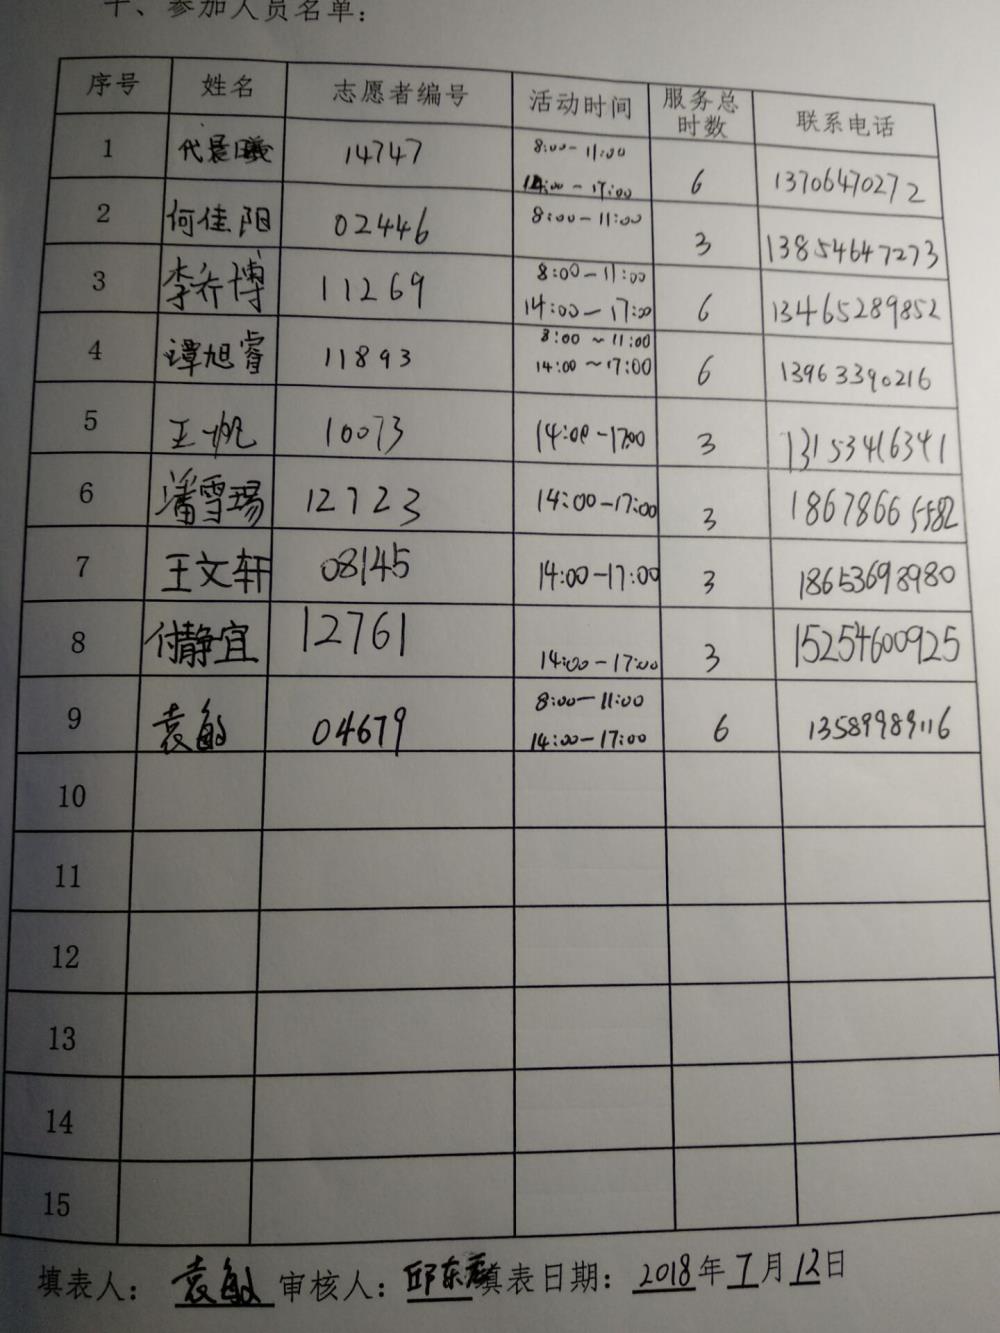 十、参加人员名单：
序号 姓名 志愿者编号 活动时间 服务总时数 联系电话
1 代晨曦 14747 8:00-11:00 14:00-17:00 6 13706470272
2 何佳阳 02446 8:00-11:00 3 13854647273
3 李乔博 11269 8:00-11:00 14:00-17:00 6 13465289852
4 谭旭睿 11893 8:00~11:00 14:00~17:00 6 13963390216
5 王一帆 10073 14:00-17:00 3 13153416341
6 潘雪瑒 12723 14:00-17:00 3 18678665582
7 王文轩 08145 14:00-17:00 3 18653698980
8 付静宜 12761 14:00-17:00 3 15254600925
9 袁敏 04679 8:00-11:00 14:00-17:00 6 13589989116
10
11
12
13
14
15
填表人：袁敏 审核人：邱东 填表日期：2018年7月12日